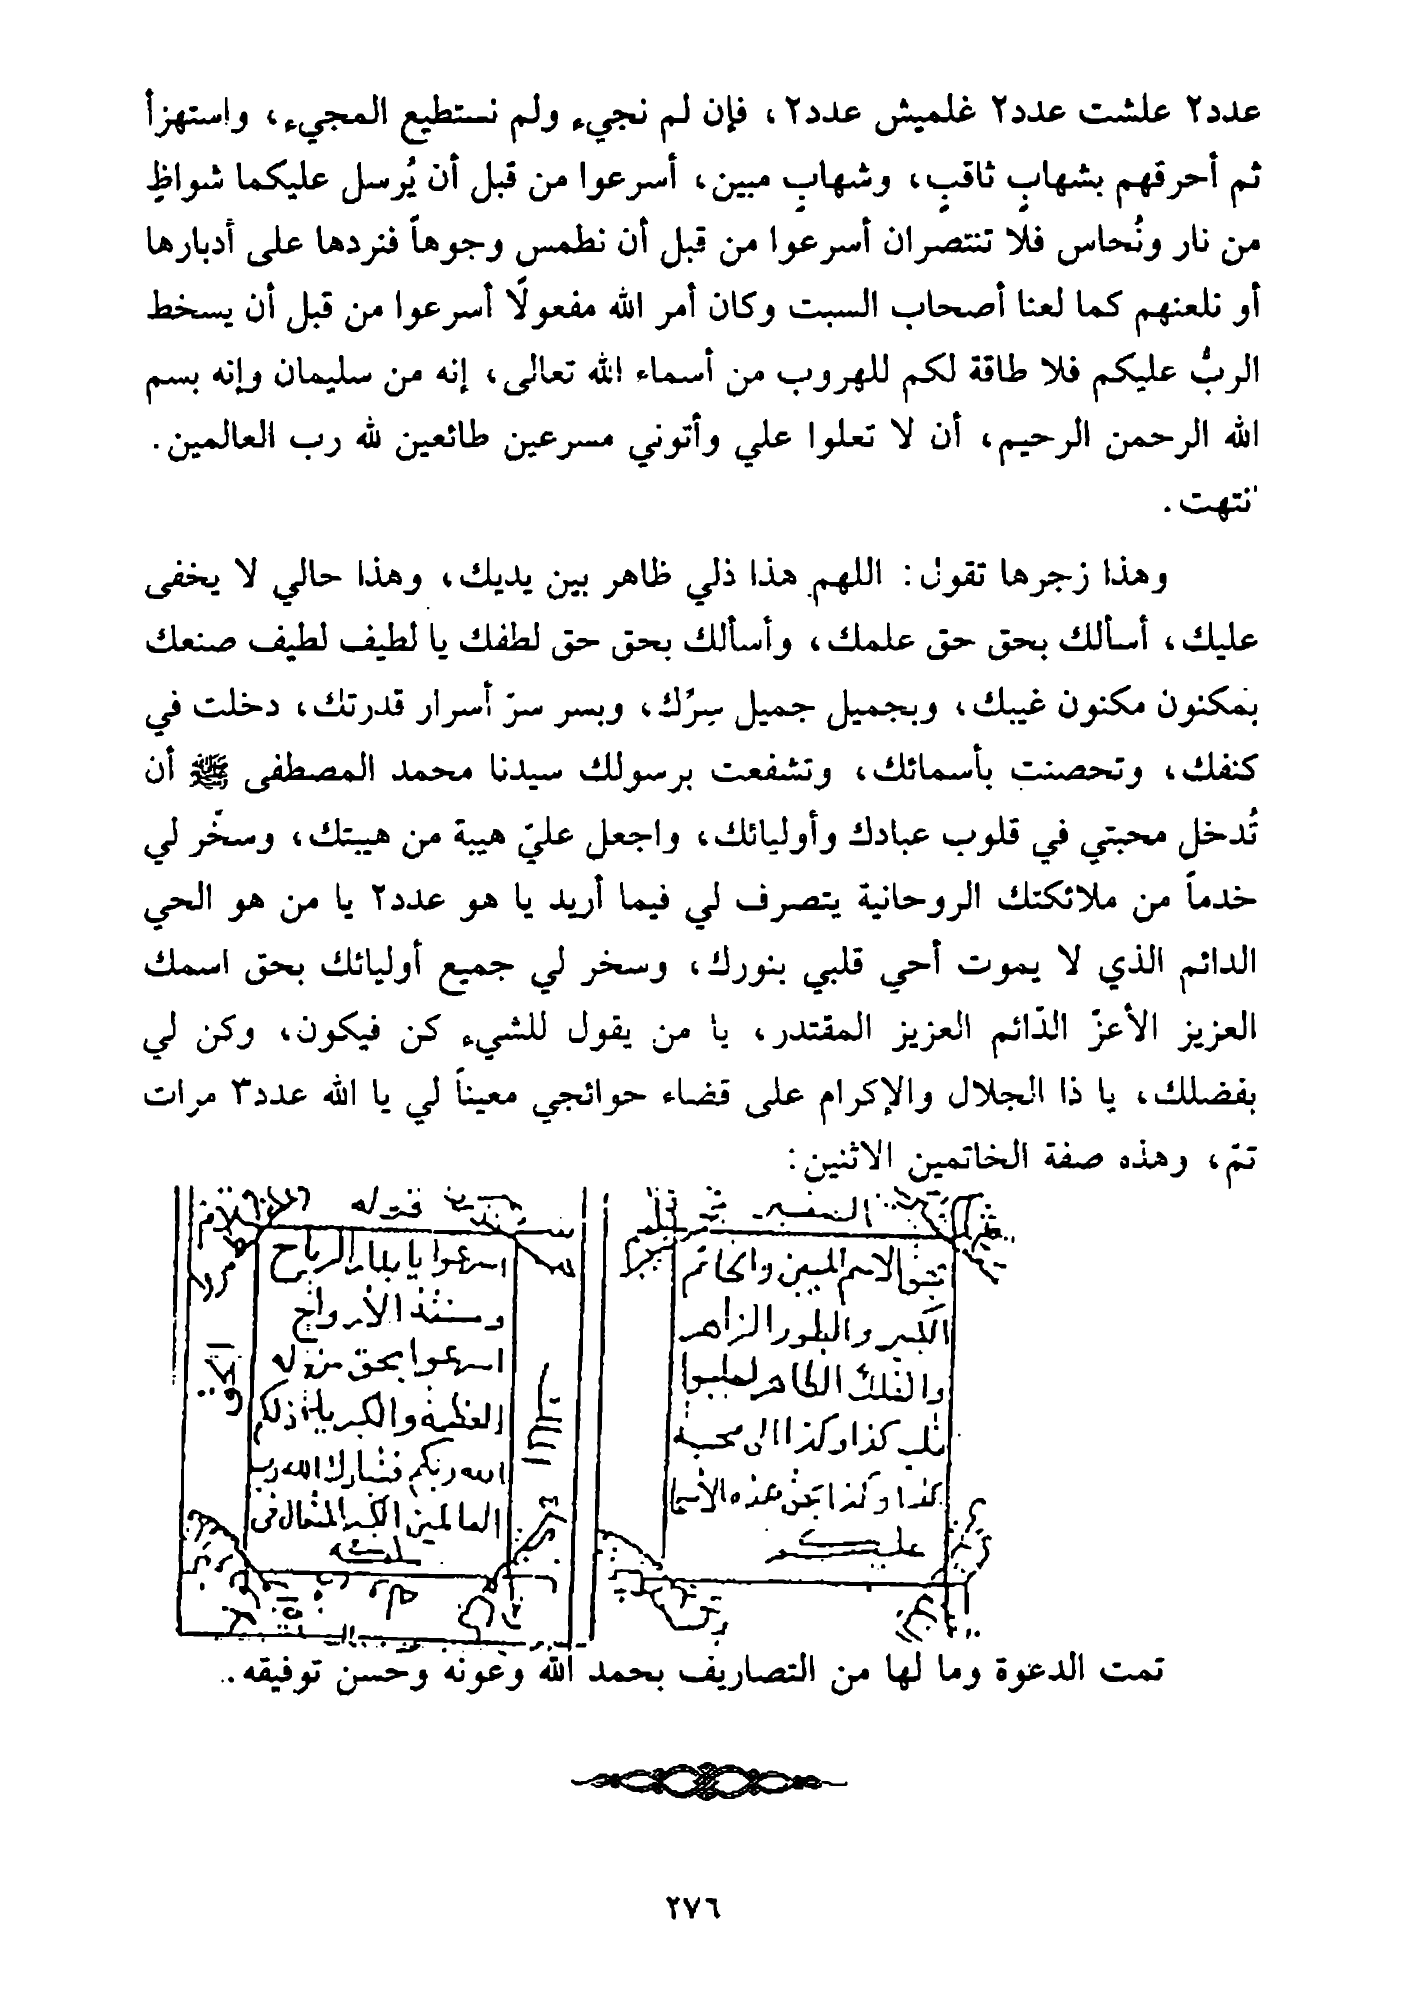 عدد٢ علشت عدد٢ غلميش عدد٢، فإن لم نجيء ولم نستطيع المجيء، واستهزأ
ثم أحرقهم بشهابٍ ثاقبٍ، وشهابٍ مبين، أسرعوا من قبل أن يُرسل عليكما شواظٍ
من نار ونُحاس فلا تنتصران أسرعوا من قبل أن نطمس وجوهاً فنردها على أدبارها
أو نلعنهم كما لعنا أصحاب السبت وكان أمر الله مفعولًا أسرعوا من قبل أن يسخط
الربُّ عليكم فلا طاقة لكم للهروب من أسماء الله تعالى، إنه من سليمان وإنه بسم
الله الرحمن الرحيم، أن لا تعلوا علي وأتوني مسرعين طائعين لله رب العالمين.
انتهت.
وهذا زجرها تقول: اللهم هذا ذلي ظاهر بين يديك، وهذا حالي لا يخفى
عليك، أسألك بحق حق علمك، وأسألك بحق حق لطفك يا لطيف لطيف صنعك
بمكنون مكنون غيبك، وبجميل جميل سِرِّك، وبسر سرّ أسرار قدرتك، دخلت في
كنفك، وتحصنت بأسمائك، وتشفعت برسولك سيدنا محمد المصطفى ﷺ أن
تُدخل محبتي في قلوب عبادك وأوليائك، واجعل عليّ هيبة من هيبتك، وسخّر لي
خدماً من ملائكتك الروحانية يتصرف لي فيما أريد يا هو عدد٢ يا من هو الحي
الدائم الذي لا يموت أحي قلبي بنورك، وسخر لي جميع أوليائك بحق اسمك
العزيز الأعزّ الدّائم العزيز المقتدر، يا من يقول للشيء كن فيكون، وكن لي
بفضلك، يا ذا الجلال والإكرام على قضاء حوائجي معيناً لي يا الله عدد٣ مرات
تمّ، وهذه صفة الخاتمين الاثنين:
بحق الاسم المبين والخاتم
والطور الزاهر
والفلك الطاهر
كذا وكذا الى محبة
كذا وكذا بحق هذه الأسما
عليكم
قوله
اسرعوا يا الرياح
الأرواح
اسرعوا بحق من له
العظمة والكبرياء ذلكم
الله ربكم فتبارك الله رب
العالمين الكبير المتعال في
ملكه
تمت الدعوة وما لها من التصاريف بحمد الله وعونه وحسن توفيقه.
٢٧٦